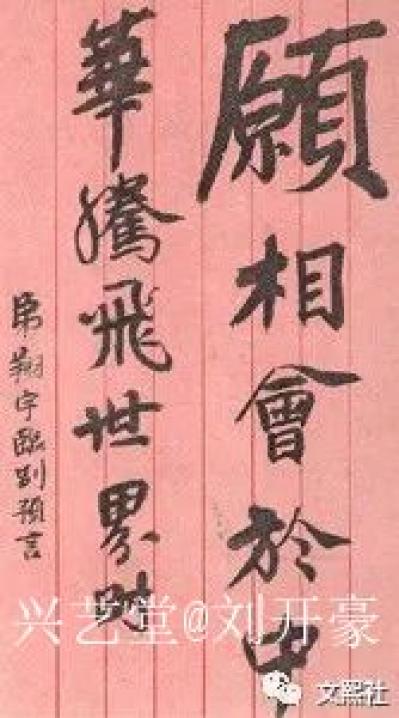 願相會於中
華騰飛世界时
弟翔宇臨别預言
兴艺堂@刘开豪
文熙社